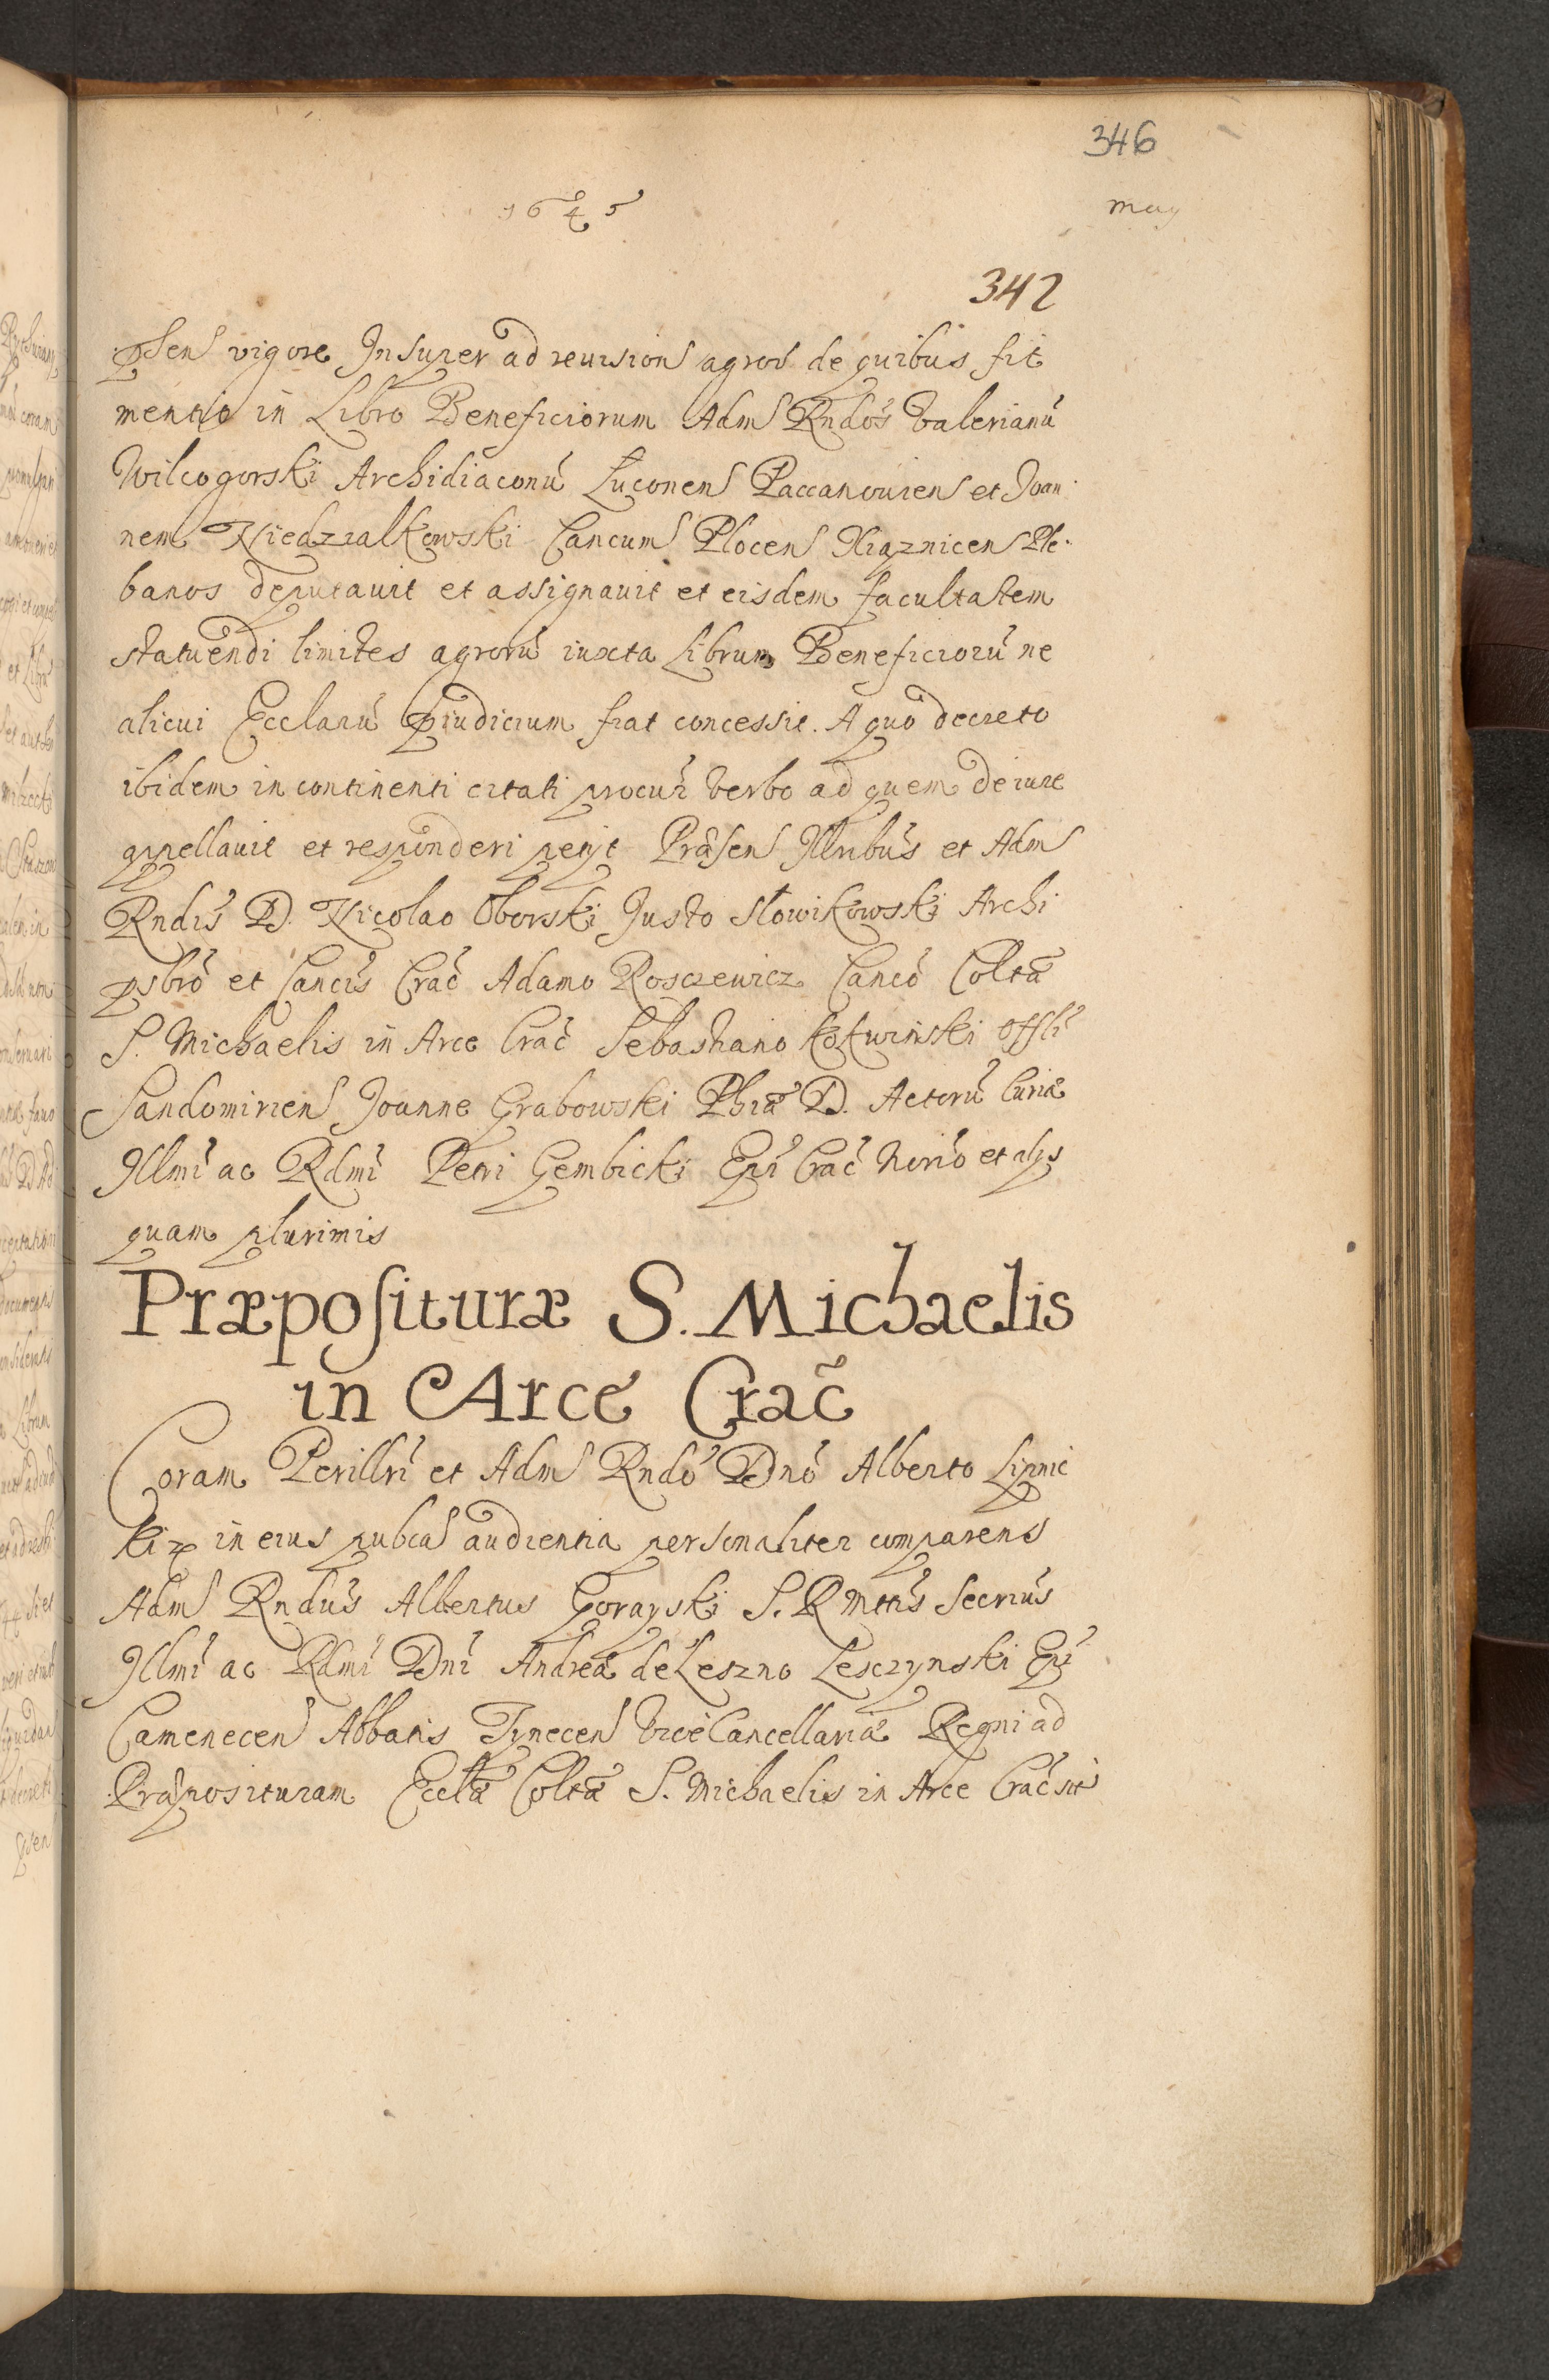 346
1645
May
342
p̄sens vigore Insuper ad reuisions agrorũ de quibus fit
mentio in Libro Beneficiorum Adm Rndos Valerianũ
Wilcogorski Archidiaconũ Luconens Paccanouiens et Joan
nem Niedzialkowski Cancum Plocens Xiąznicens Ple-
banos deputauit et assignauit et eisdem facultatem
statuendi limites agrorũ iuxta Librum Beneficiorũ ne
alicui Ecclarũ p̄iudicium fiat concessit. A quo decreto
ibidem in continenti citati procur̃ verbo ad quem de iure
appellauit et responderi petijt Præsen Illribus et Adm
Rndis D. Nicolao Oborski Justo Słowikowski Archi
psbrõ et Cancis Crac̃ Adamo Rosczewicz Cancõ Coltæ
S. Michaelis in Arce Crac̃ Sebastiano Kokwiński Offlĩ
Sandomiriens Joanne Grabowski Phiæ D. Actorũ Curiæ
Illmĩ ac Rdmĩ Petri Gembicki Epĩ Crac̃ Norio et alys
quam plurimis
Præpositura S. Michaelis
in Arce Crac̃
Coram Perillrĩ et Adm Rndõ Dnõ Alberto Lipnic
ki in eius pubca audientia personaliter comparens
Adm Rndus Albertus Gorayski S. R Mttis Secrius
Illmĩ ac Rdmĩ Dnĩ Andreæ de Leszno Lesczynski Epĩ
Camenecens Abbatis Tynecens ViceCancellariæ Regni ad
Præposituram Eccltæ Coltæ S. Michaelis in Arce Crac̃ sit